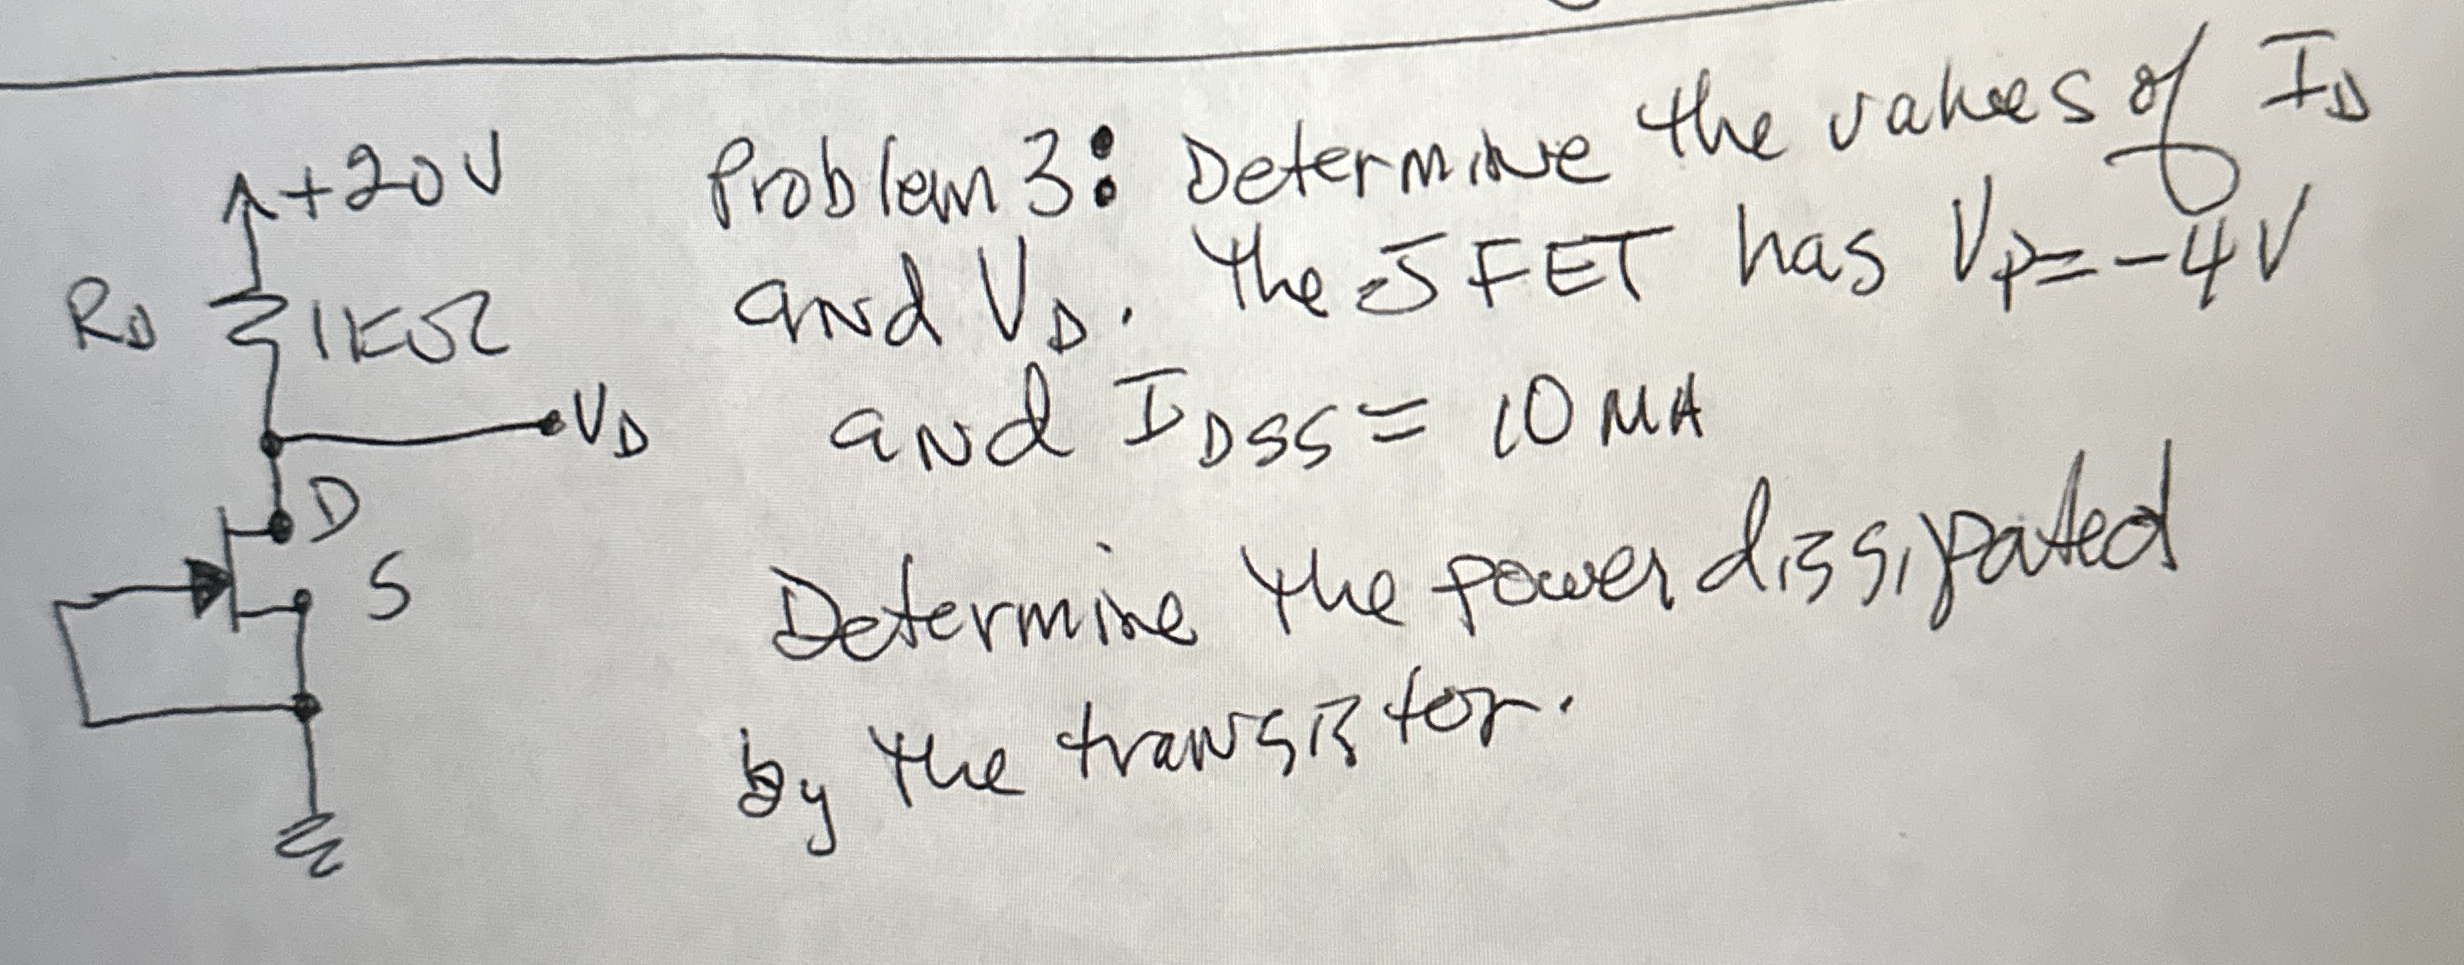 +20V
RD
1KΩ
VD
D
S
Problem 3: Determine the values of ID
and VD. The JFET has VP=-4V
and IDSS= 10 mA
Determine the power dissipated
by the transistor.